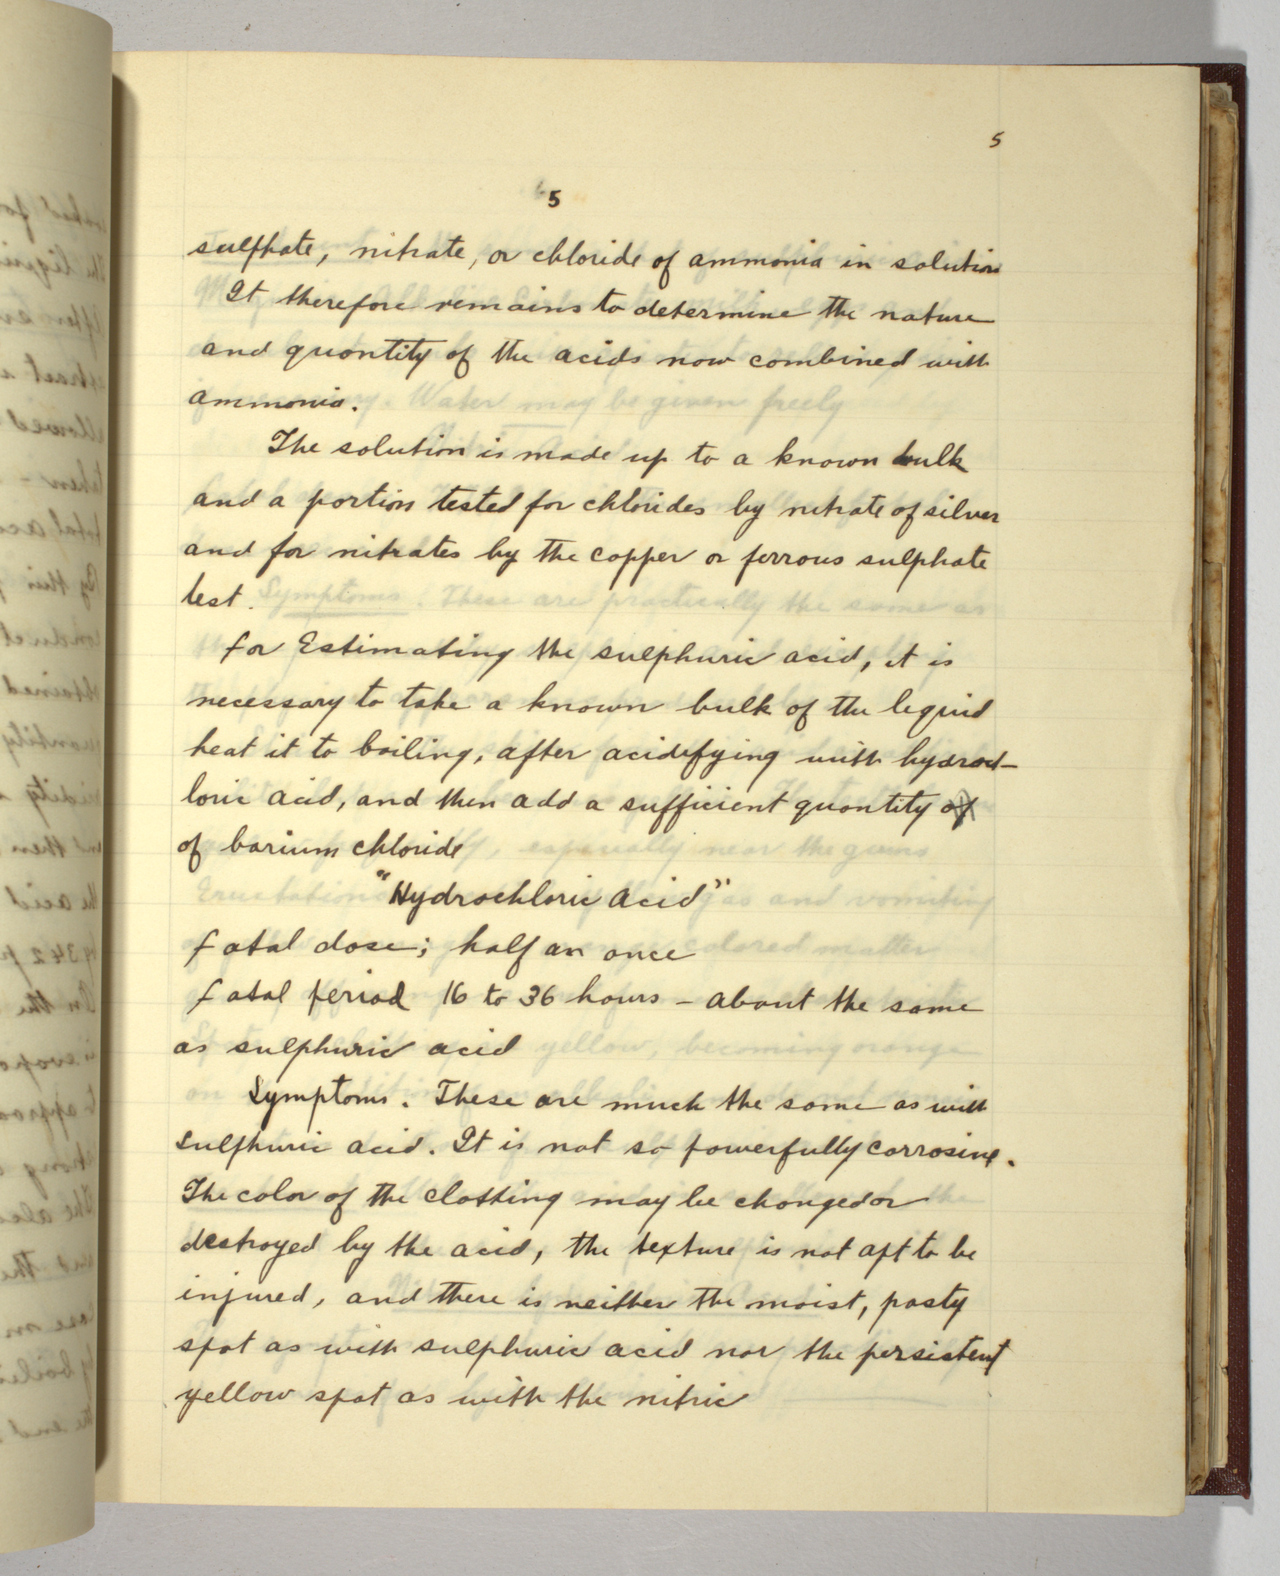 5
5
sulphate, nitrate, or chloride of ammonia in solution
It therefore remains to determine the nature
and quantity of the acids now combined with
ammonia.
The solution is made up to a known bulk
and a portion tested for chlorides by nitrate of silver
and for nitrates by the copper or ferrous sulphate
test.
for Estimating the sulphuric acid, it is
necessary to take a known bulk of the liquid
heat it to boiling, after acidifying with hydroch-
loric acid, and then add a sufficient quantity of
of barium chloride
"Hydrochloric acid"
fatal dose; half an once
fatal period 16 to 36 hours - about the same
as sulphuric acid
Symptoms. These are much the same as with
sulphuric acid. It is not so powerfully corrosive.
The color of the clothing may be changed or
destroyed by the acid, the texture is not apt to be
injured, and there is neither the moist, pasty
spot as with sulphuric acid nor the persistent
yellow spot as with the nitric